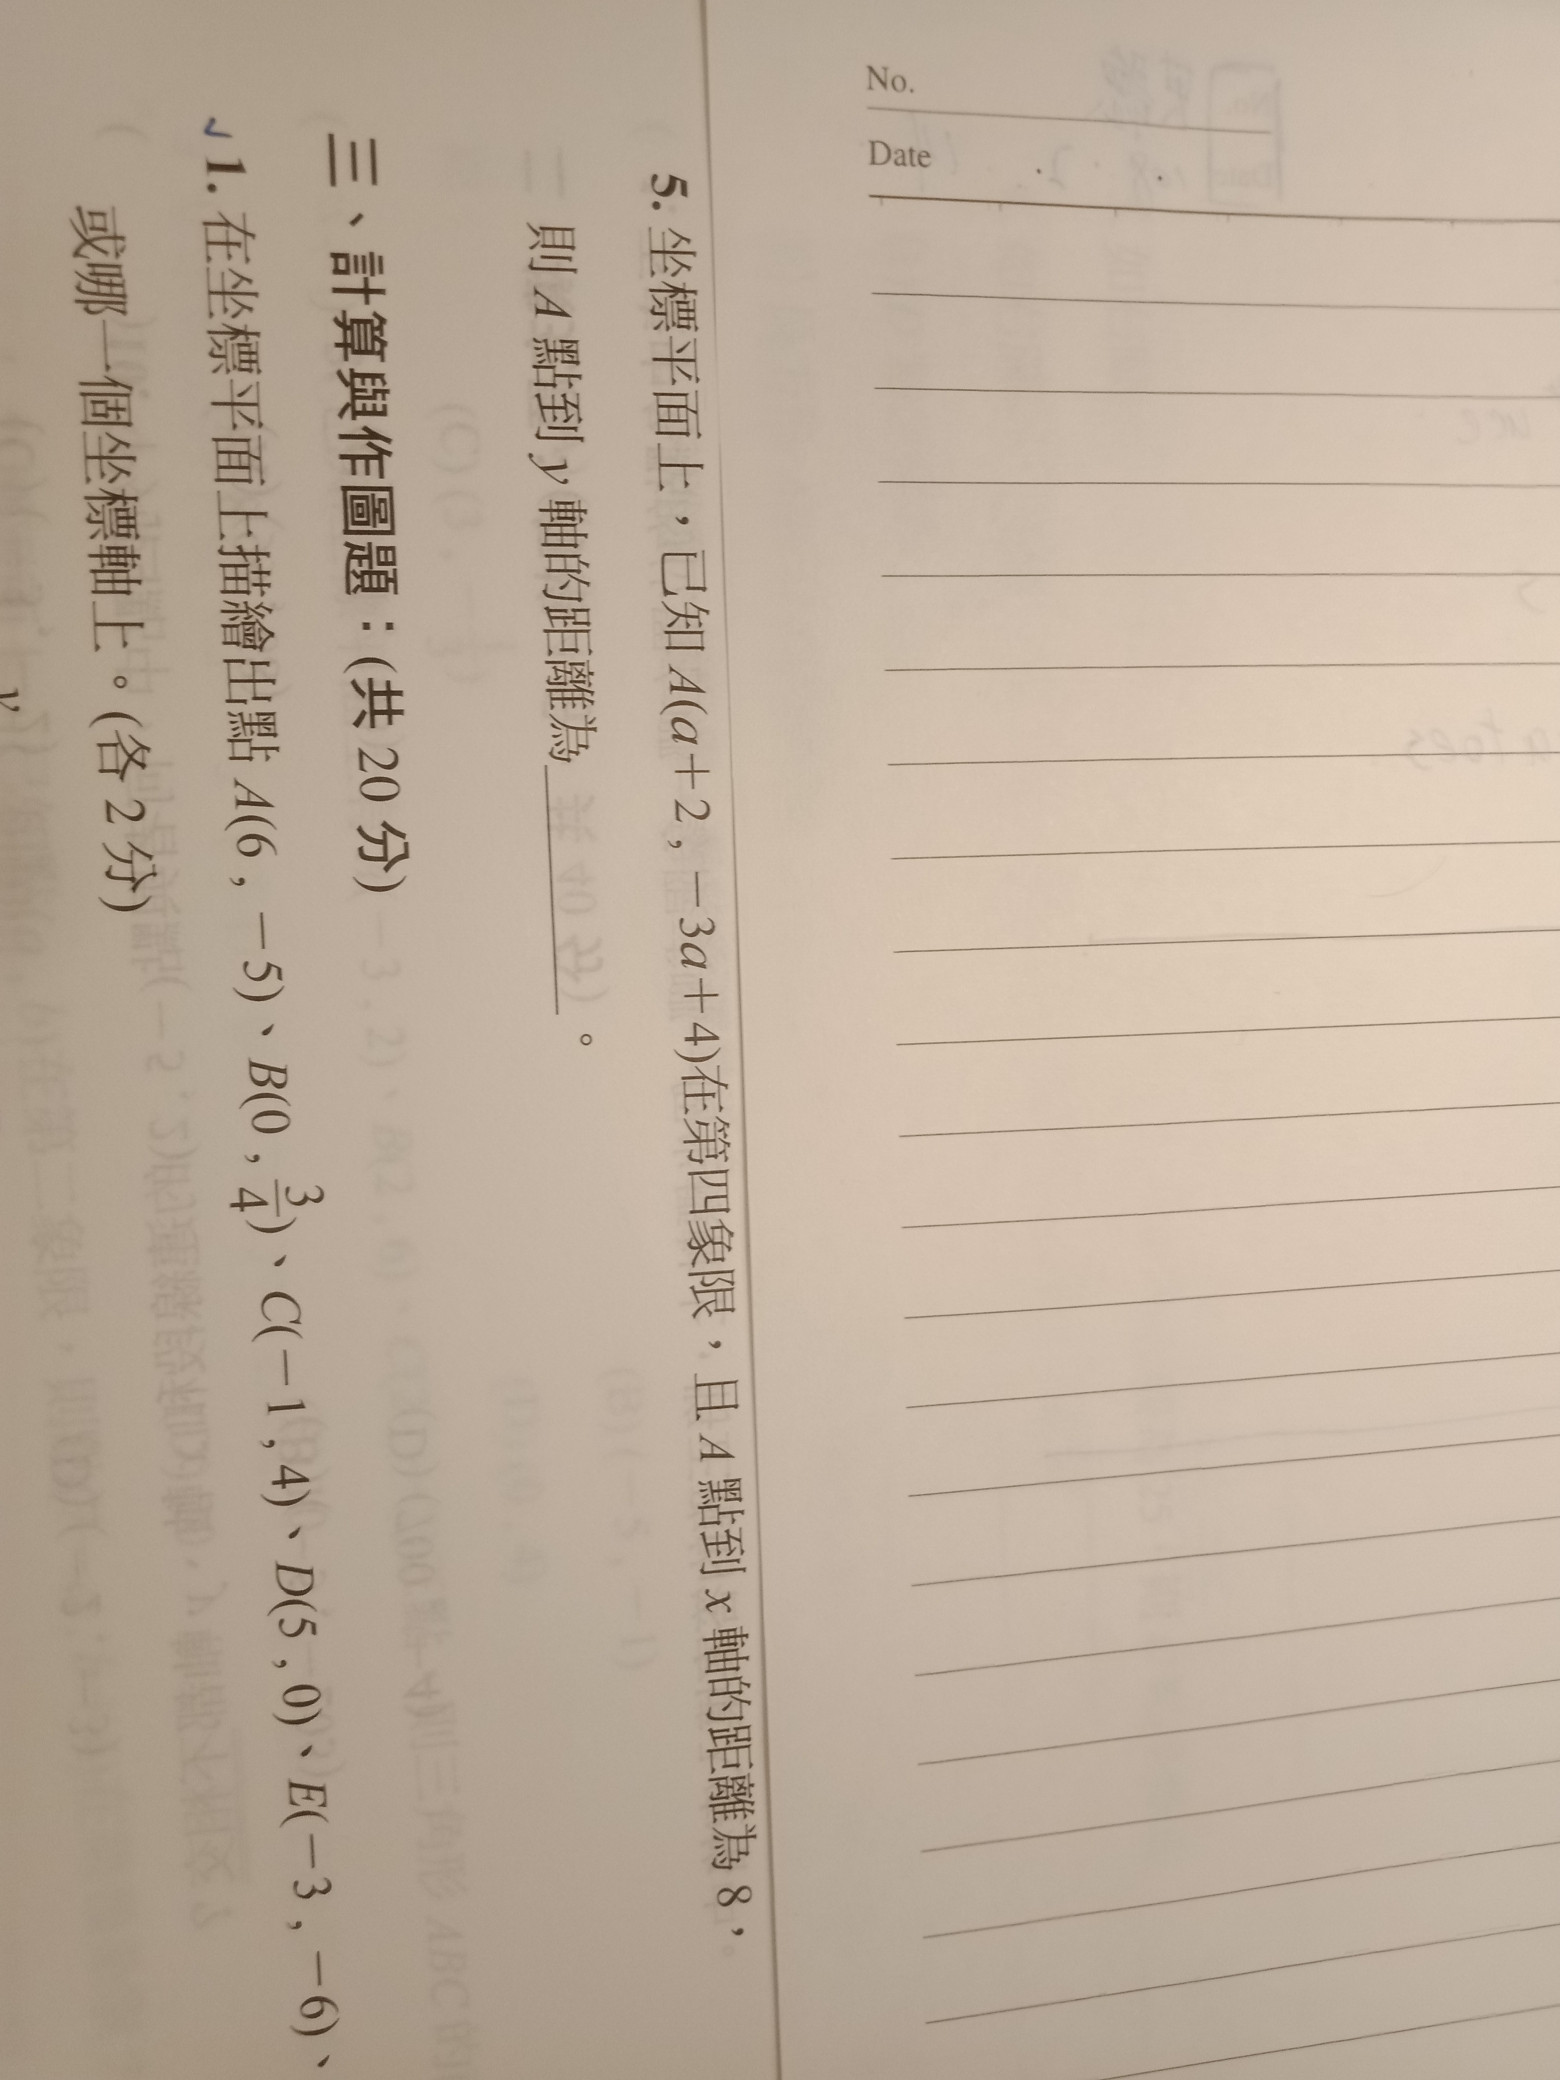 No.
Date
5. 坐標平面上，已知 A(a＋2 , －3a＋4)在第四象限，且 A 點到 x 軸的距離為 8，
則 A 點到 y 軸的距離為＿＿＿＿。
三、計算與作圖題：(共 20 分)
1. 在坐標平面上描繪出點 A(6 , －5)、B(0 , 3/4)、C(－1 , 4)、D(5 , 0)、E(－3 , －6)、
或哪一個坐標軸上。(各 2 分)
y